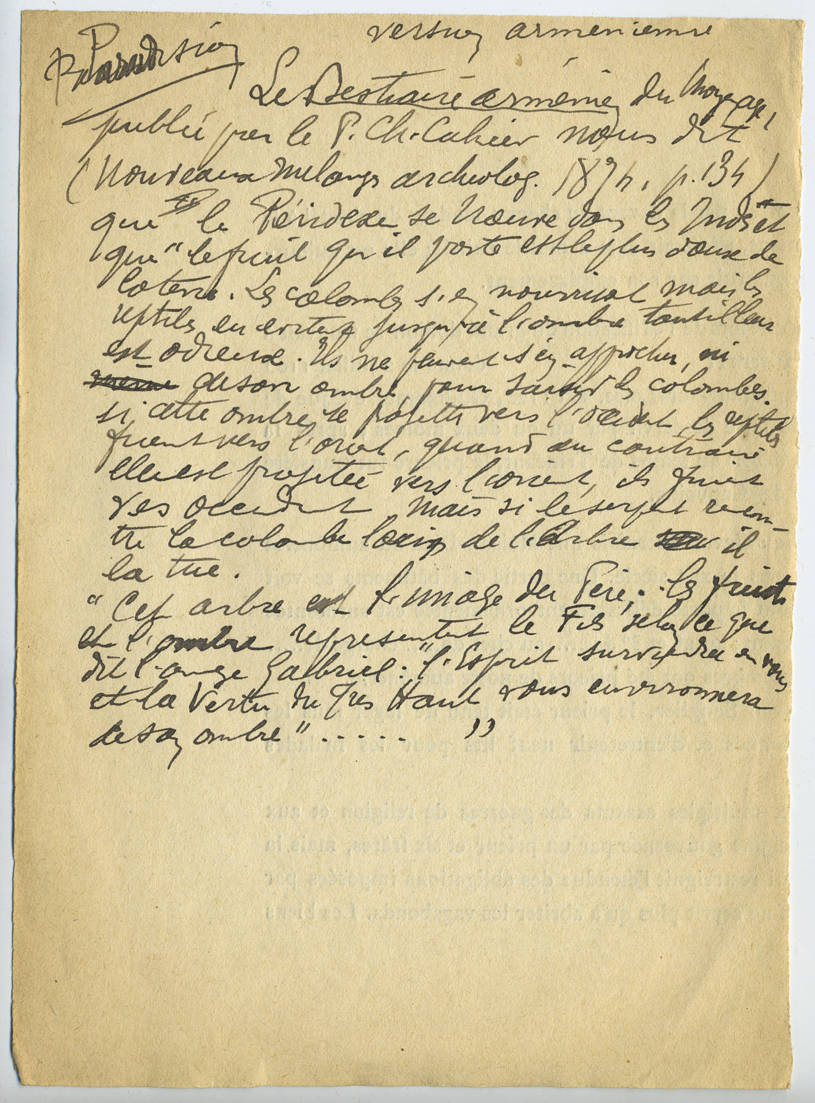 version arménienne
Le Bestiaire arménien du Moyen age,
publié par le P. Ch. Cahier nous dit
(Nouveaux Melanges archeolog. 1874, p. 134)
que le Péridexe se trouve dans les Indes et
que "le fruit qu'il porte est le plus doux de
la terre. Les colombes s'en nourrissent mais les
reptiles en évitent jusqu'à l'ombre tant il leur
est odieux. Ils ne peuvent s'en approcher, ni
de son ombre, pour saisir les colombes.
si cette ombre se projette vers l'occident, les reptiles
fuient vers l'orient, quand au contraire
elle est projetée vers l'orient, ils fuient
vers occident. Mais si le serpent rencon-
tre la colombe loin de l'Arbre il
la tue.
"Cet arbre est l'image du Père; les fruits
et l'ombre représentent le Fils selon ce que
dit l'ange Gabriel: "l'Esprit surviendra en vous
et la Vertu du Très Haut vous environnera
de son ombre" ...... "